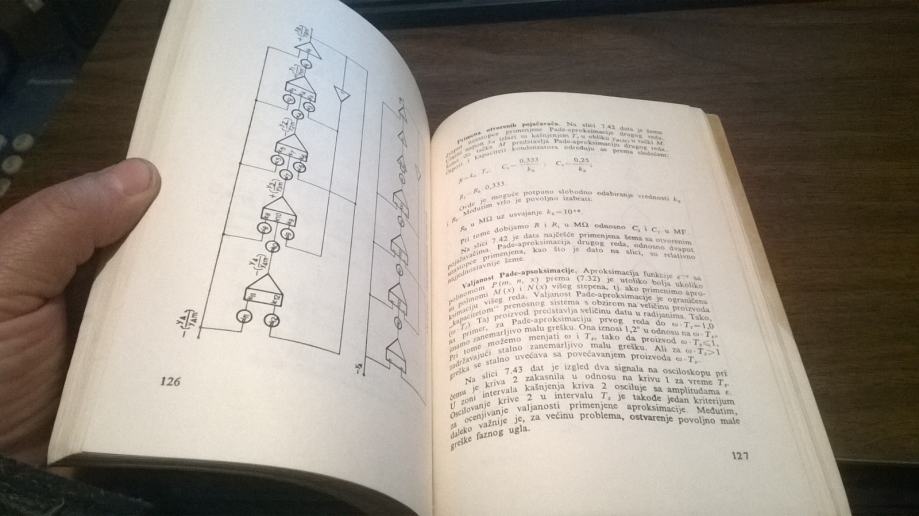 126
Primena otvorenih pojačavača. Na slici 7.42 data je šema
dvaput uzastopce primenjene Pade-aproksimacije drugog reda.
Šema do tačke M predstavlja Pade-aproksimaciju drugog reda.
Otpori i kapaciteti kondenzatora određuju se prema sledećem:
R = k₀ T₂, C₁ = 0,333 / k₀ ; C₂ = 0,25 / k₀ ;
0,333.
Ovde je moguće potpuno slobodno odabiranje vrednosti k₀
i R₀. Međutim vrlo je povoljno izabrati:
R₀ u MΩ uz usvajanje
Pri tome dobijamo R i R₁ u MΩ odnosno C₁ i C₂ u MF.
Na slici 7.42 je data najčešće primenjena šema sa otvorenim
pojačavačima. Pade-aproksimacija drugog reda, odnosno dvaput
uzastopce primenjena, kao što je dato na slici, su relativno
najjednostavnije šeme.
Valjanost Pade-apsoksimacije. Aproksimacija funkcije sa
polinomom P(m, n, x) prema (7.32) je utoliko bolja ukoliko
su polinomi M(x) i N(x) višeg stepena, tj. ako primenimo apro-
ksimaciju višeg reda. Valjanost Pade-aproksimacije je ograničena
„kapacitetom" prenosnog sistema s obzirom na veličinu proizvoda
Taj proizvod predstavlja veličinu datu u radijanima. Tako,
na primer, za Pade-aproksimaciju prvog reda do ω·T₂=1,0
imamo zanemarljivo malu grešku. Ona iznosi 1,2° u odnosu na ω·T₂.
Pri tome možemo menjati ω i T₂, tako da proizvod ω·T₂≤1,
zadržavajući stalno zanemarljivo malu grešku. Ali za ω·T₂>1
greška se stalno uvećava sa povećavanjem proizvoda ω·T₂.
Na slici 7.43 dat je izgled dva signala na osciloskopu pri
čemu je kriva 2 zakasnila u odnosu na krivu 1 za vreme T₂.
U zoni intervala kašnjenja kriva 2 osciluje sa amplitudama ε.
Oscilovanje krive 2 u intervalu T₂ je takođe jedan kriterijum
za ocenjivanje valjanosti primenjene aproksimacije. Međutim,
daleko važnije je, za većinu problema, ostvarenje povoljno male
greške faznog ugla.
127